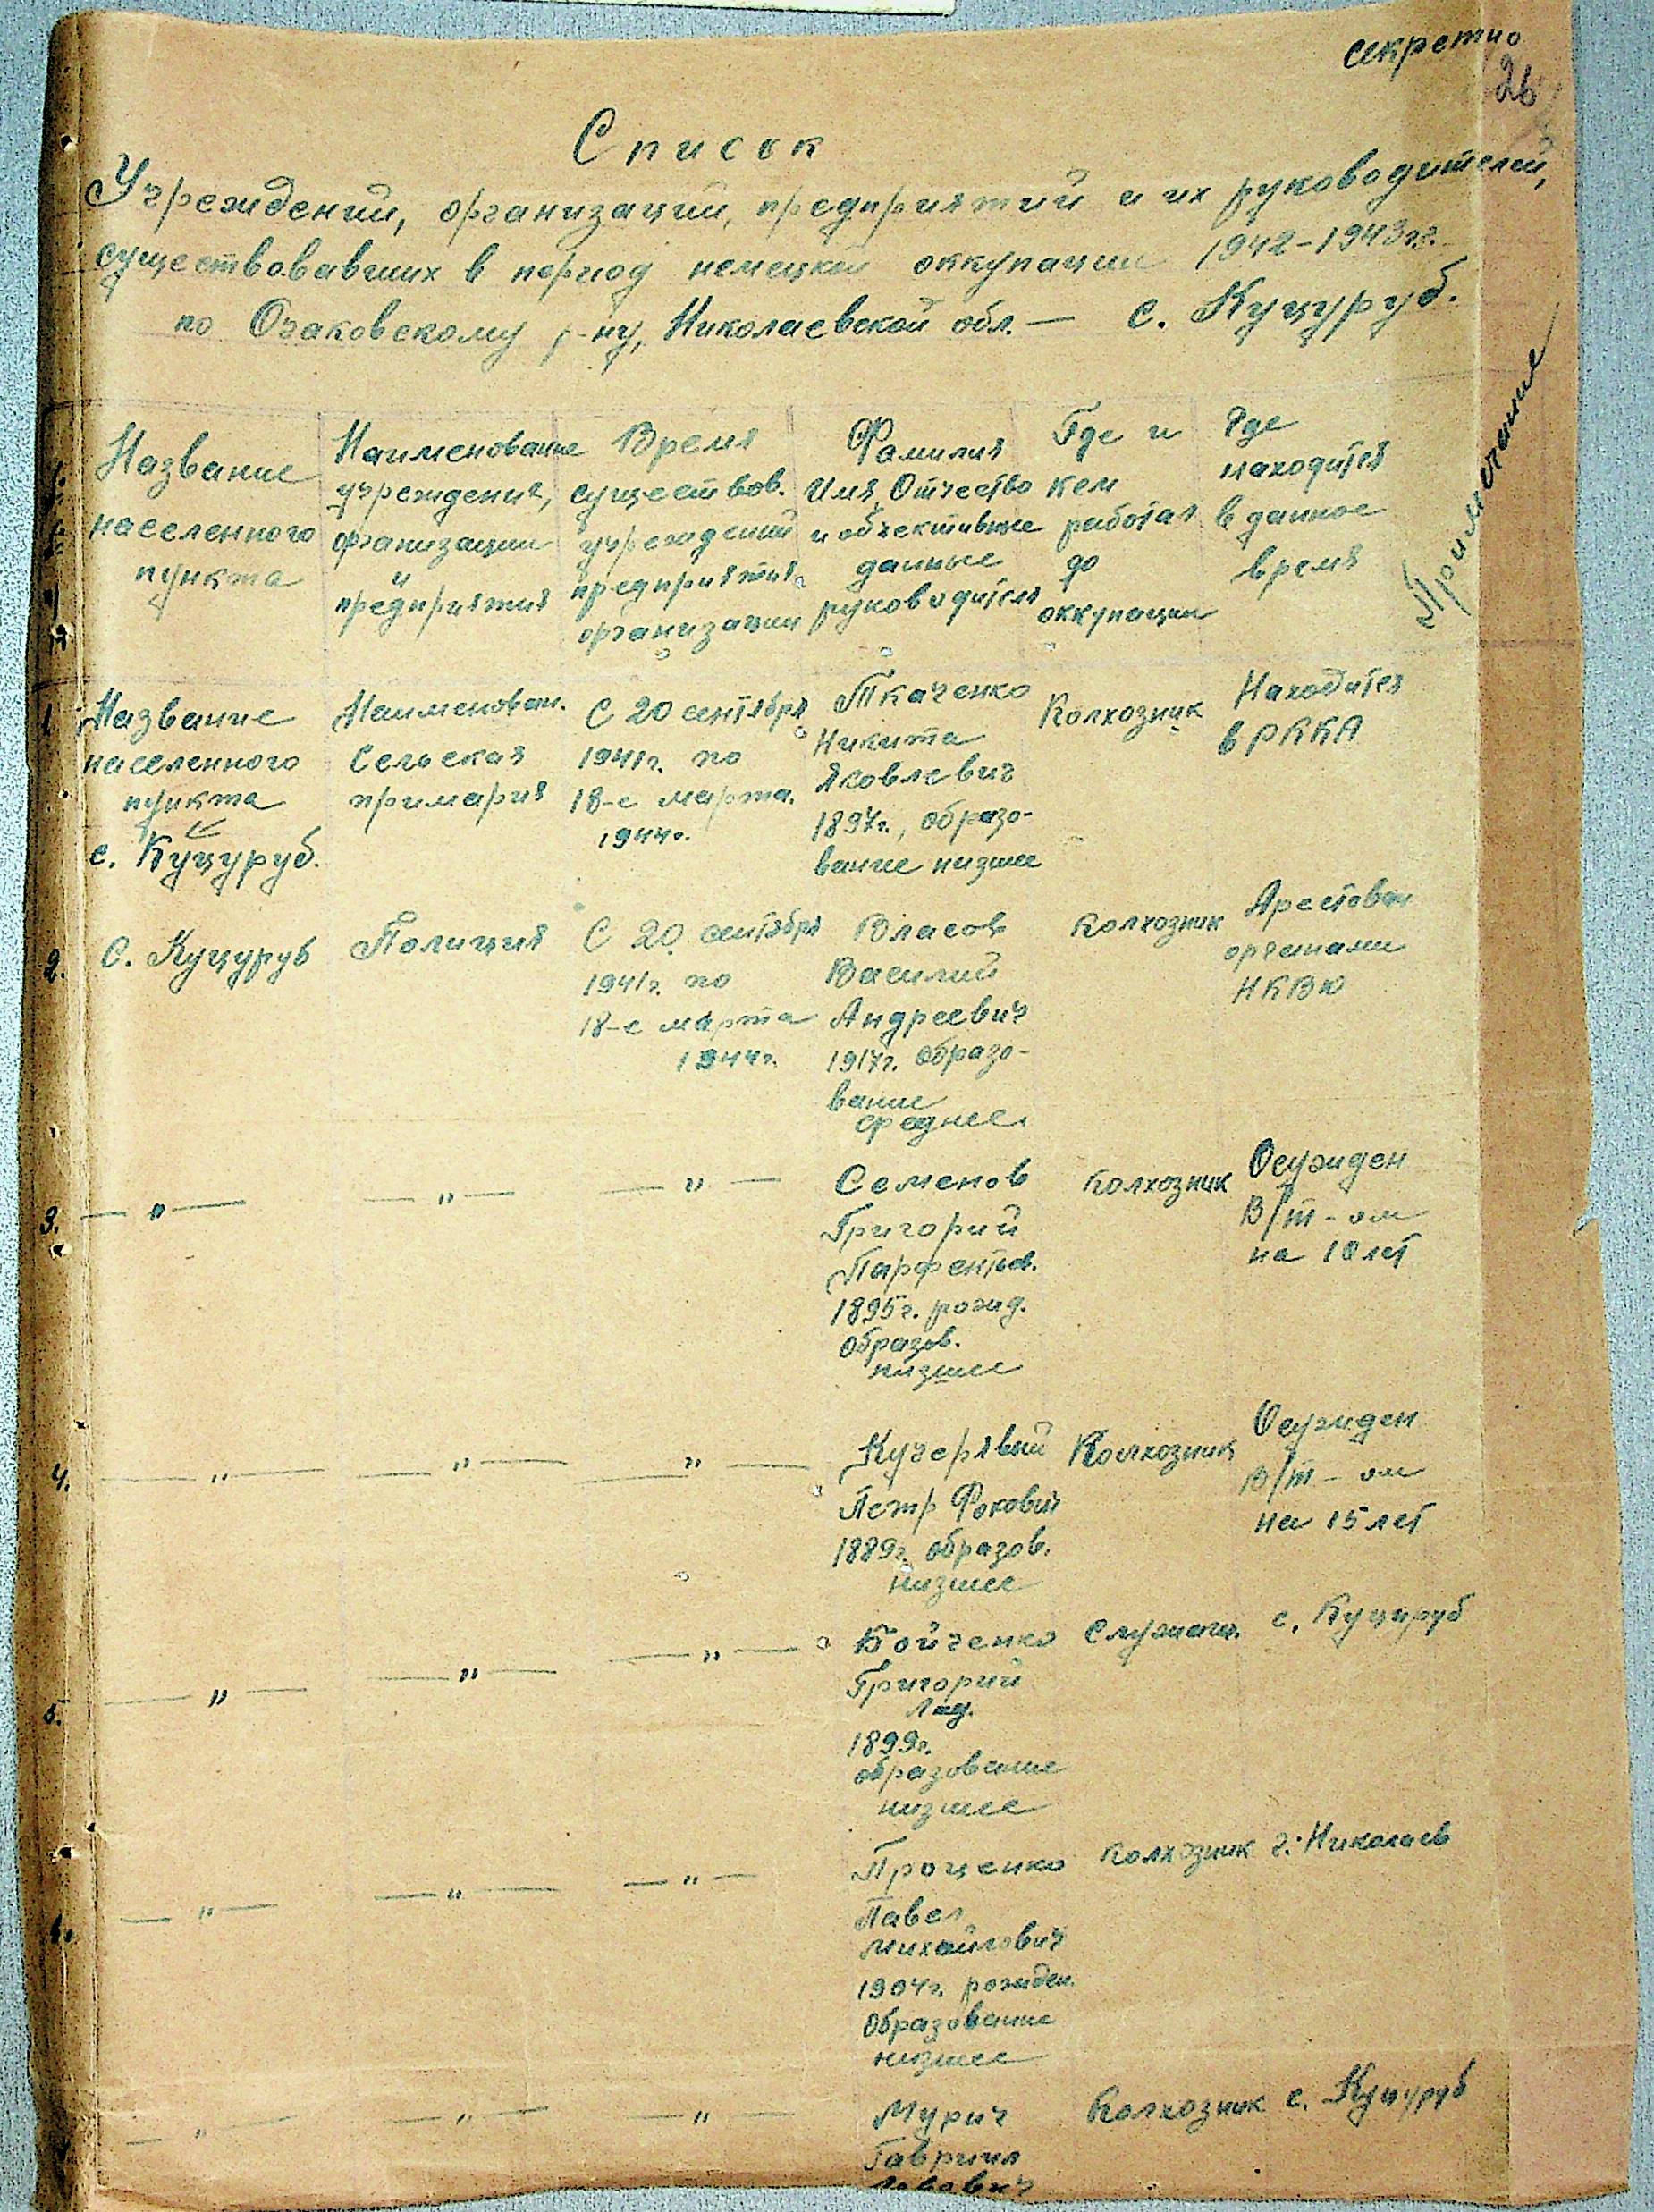 секретно
26
Список
Учреждений, организаций, предприятий и их руководителей,
существовавших в период немецкой оккупации 1942-1943гг.
по Очаковскому р-ну, Николаевской обл. — с. Куцуруб.
Название
населенного
пункта
Наименование
учреждения,
организации
и
предприятия
Время
существов.
учреждений
предприятия
организации
Фамилия
Имя, Отчество
и объективные
данные
руководителя
Где и
кем
работал
до
оккупации
Где
находится
в данное
время
Примечание
1. Название
населенного
пункта
с. Куцуруб.
Наименован.
Сельская
примария
С 20 сентября
1941г. по
18-е марта.
1944г.
Ткаченко
Никита
Яковлевич
1897г., образо-
вание низшее
Колхозник
Находится
в РККА
2. С. Куцуруб
Полиция
С 20 сентября
1941г. по
18-е марта
1944г.
Власов
Василий
Андреевич
1917г. образо-
вание
среднее.
Колхозник
Арестован
органами
НКВД
3. — " —
— " —
— " —
Семенов
Григорий
Парфентьев.
1895г. рожд.
образов.
низшее
Колхозник
Осужден
В/т-ом
на 10 лет
4. — " —
— " —
— " —
Кучерявый
Петр Фокович
1889г. образов.
низшее
Колхозник
Осужден
В/т-ом
на 15 лет
5. — " —
— " —
— " —
Бойченко
Григорий
1899г.
образование
низшее
Служащ.
с. Куцуруб
6. — " —
— " —
— " —
Проценко
Павел
Михайлович
1904г. рожден.
Образование
низшее
Колхозник
г. Николаев
— " —
— " —
— " —
Мурич
Гавриил
Колхозник
с. Куцуруб